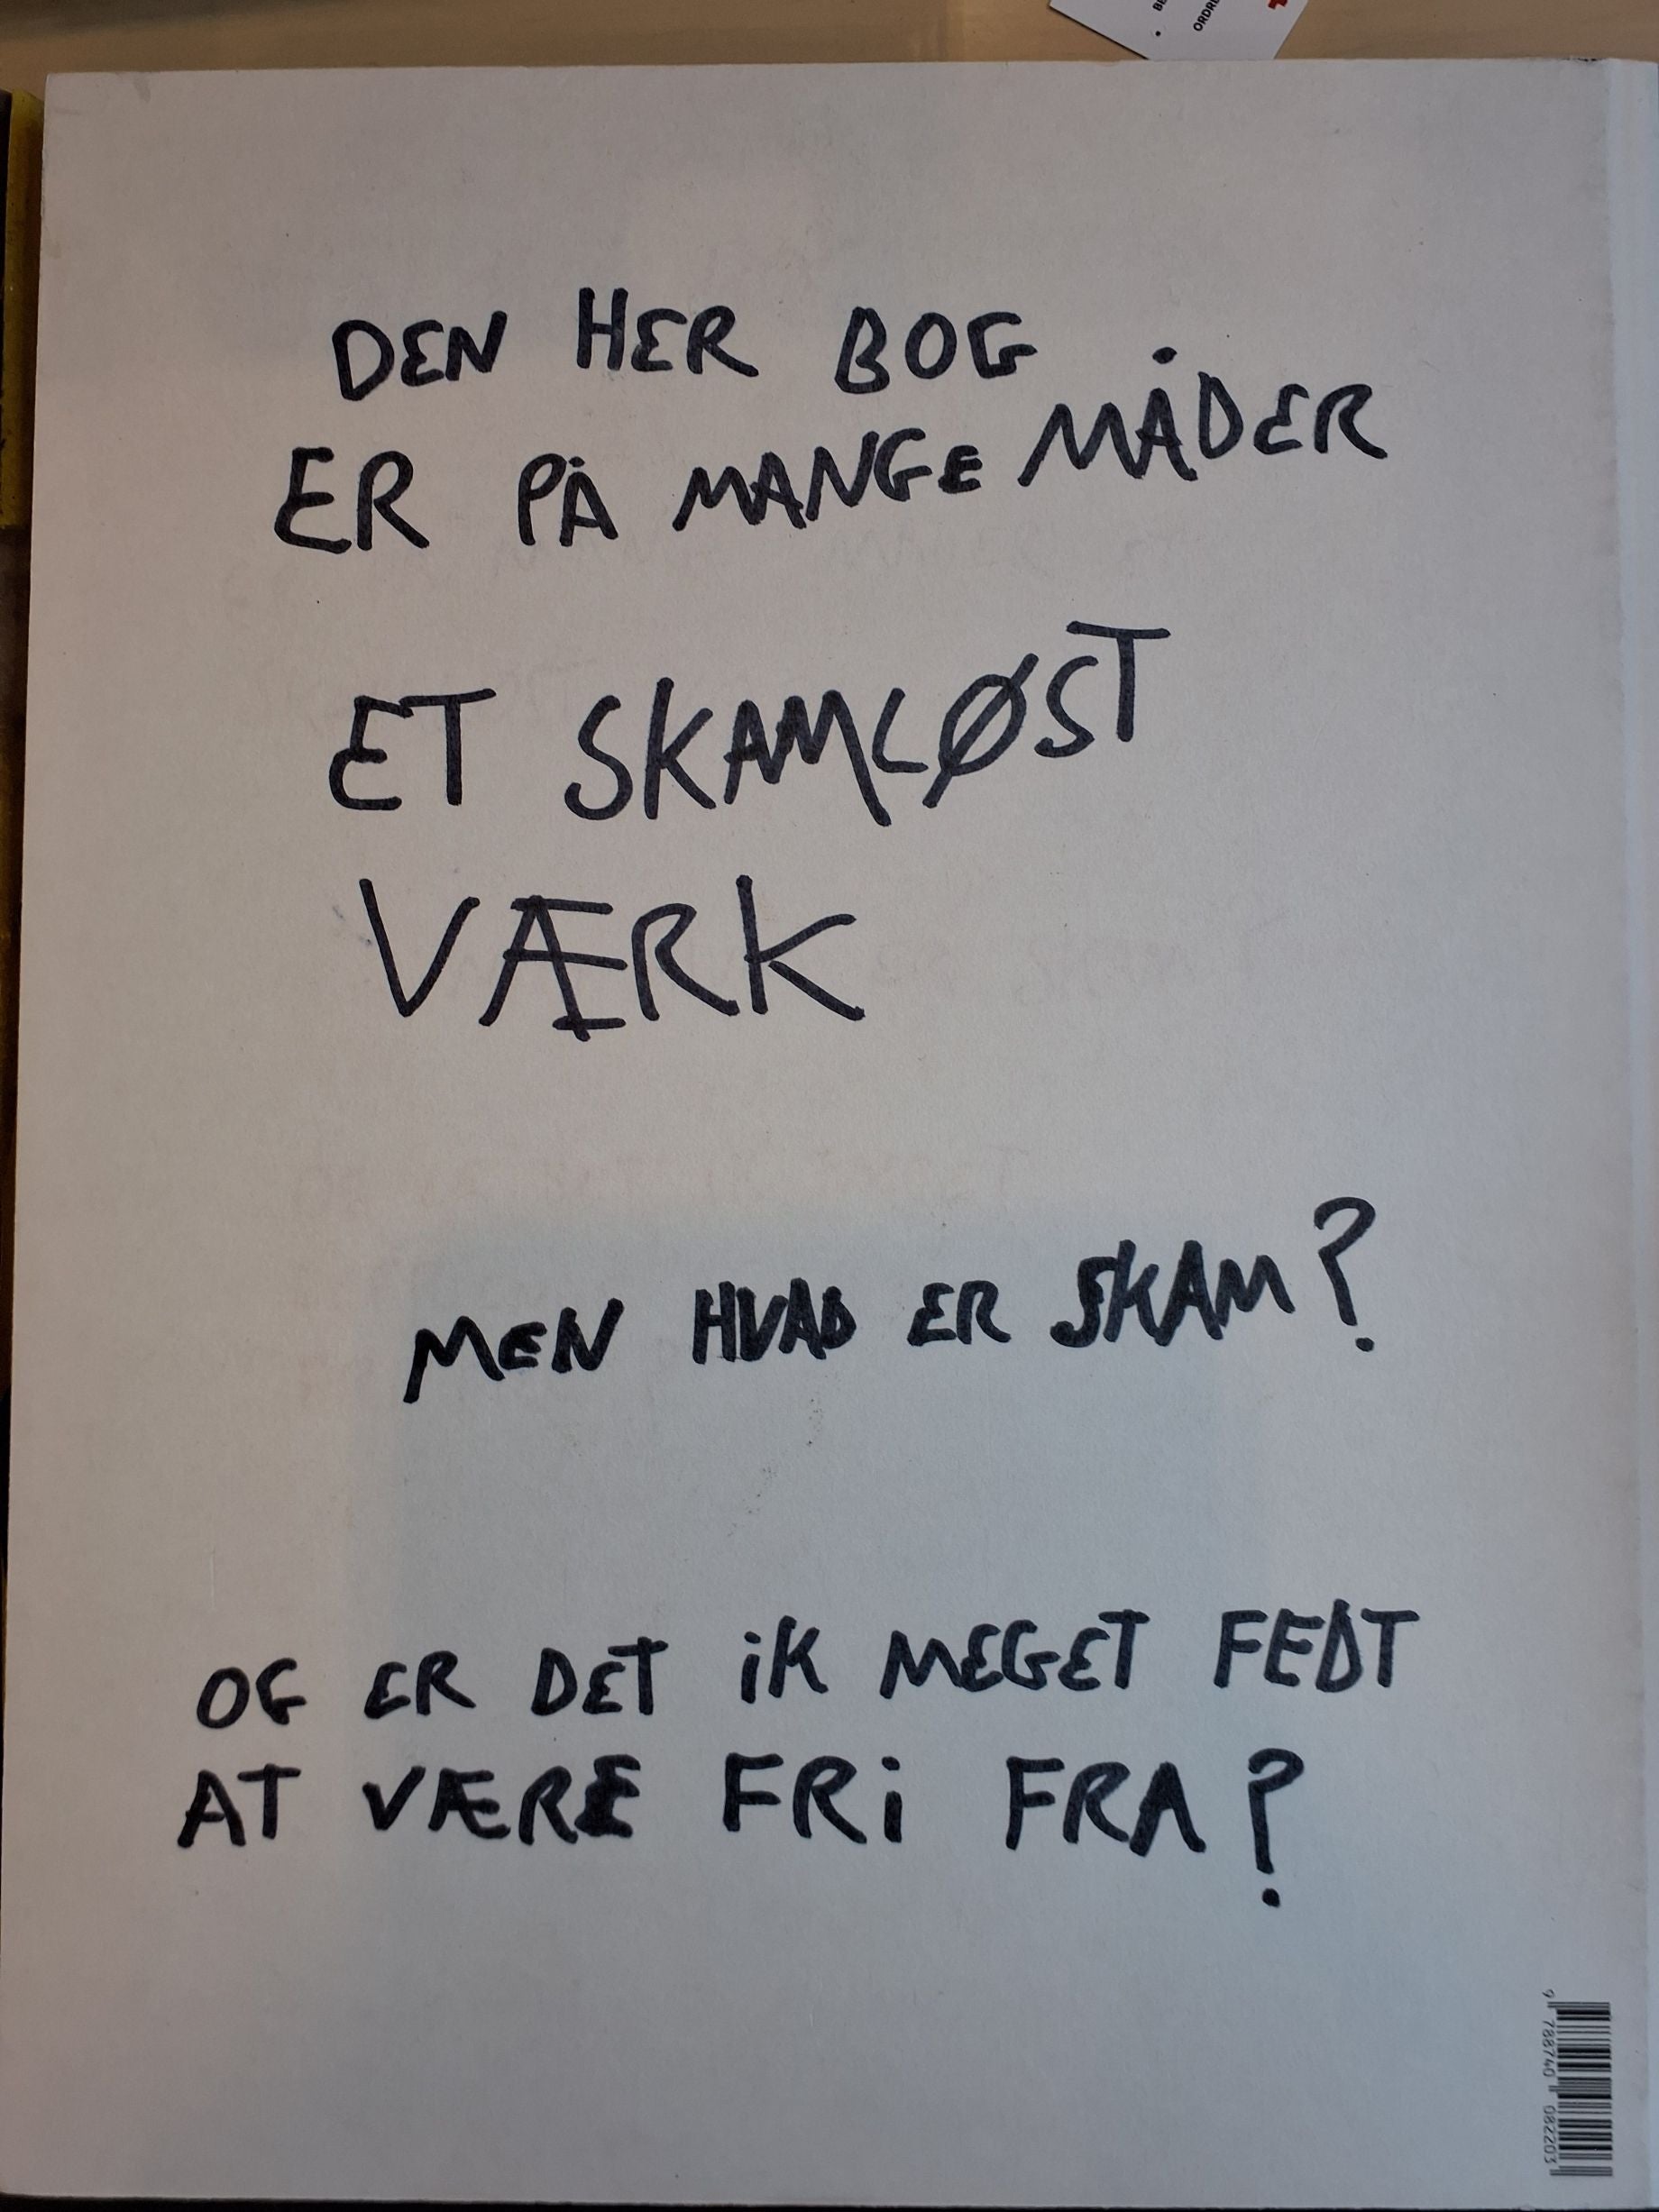 BE
ORDR
DEN HER BOG
ER PÅ MANGE MÅDER
ET SKAMLØST
VÆRK
MEN HVAD ER SKAM?
OG ER DET iK MEGET FEDT
AT VÆRE FRi FRA?
9 788740 082203